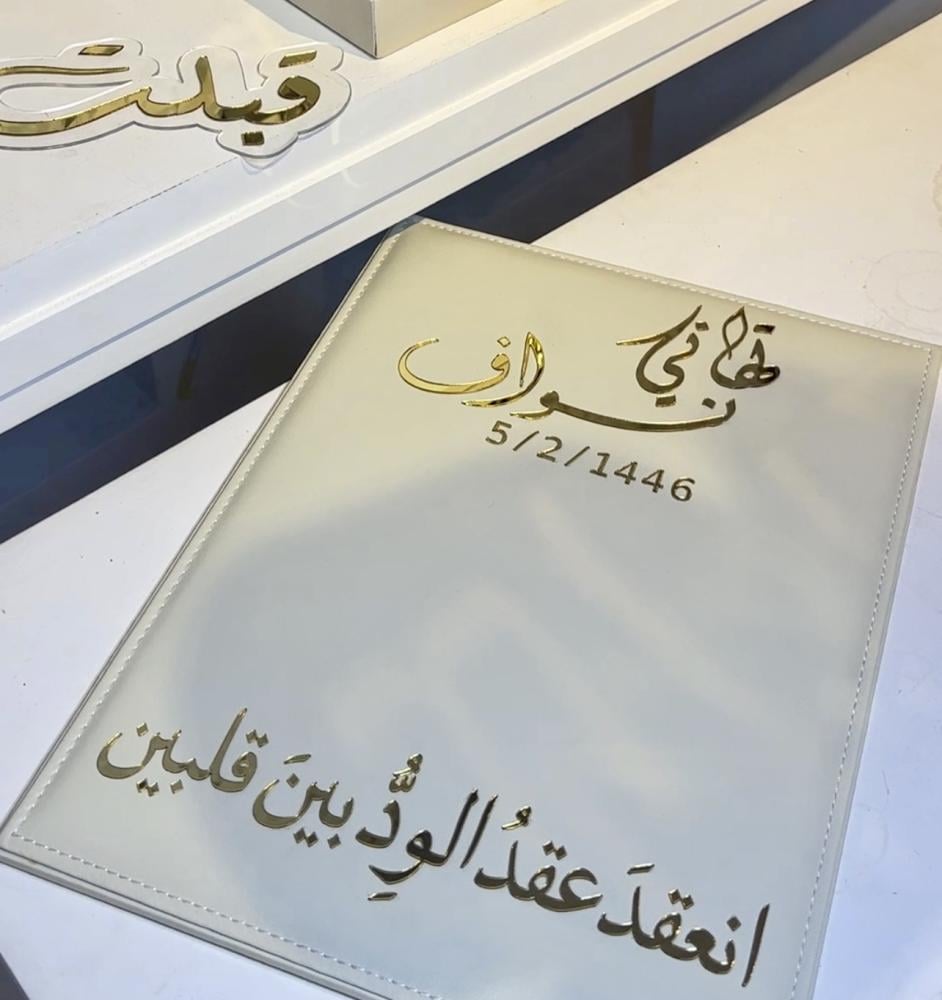 قبلت
تهاني
نواف
5/2/1446
انعقدَ عقدُ الوِدُّ بينَ قلبين